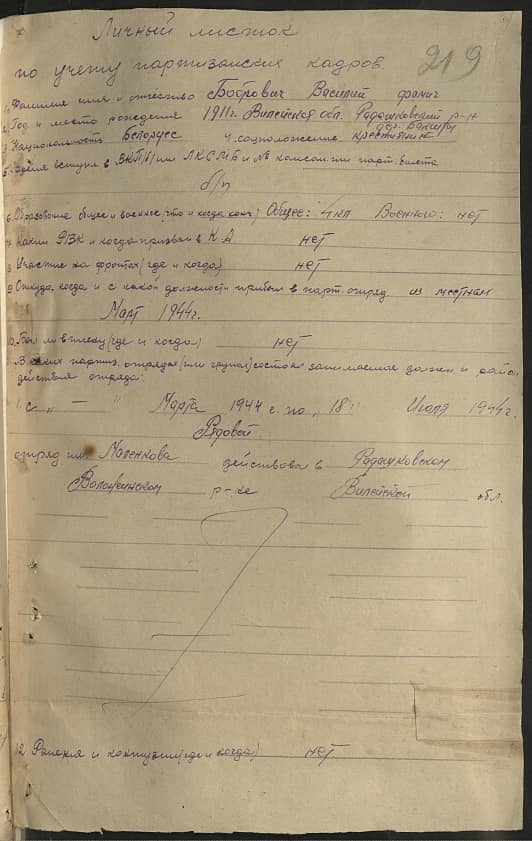 219
Личный листок
по учету партизанских кадров.
1. Фамилия имя и отчество Бобрович Василий
2. Год и место рождения 1911г. Вилейская обл. Радашковский р-н
дер.
3. Национальность Белорусс 4. соцположение крестьянин
5. Время вступл в ВКП/б/ или ЛКСМБ и № комсом. или парт. билета
б/п
6. Образование общее и военное (что и когда конч.) Общее: 4 кл Военного: нет
7. Каким РВК и когда призван в К А нет
8. Участие на фронтах (где и когда) нет
9. Откуда, когда и с какой должности прибыл в парт. отряд. из местных
Март 1944г.
10. Был ли в плену (где и когда) нет
В каких партиз. отрядах (или групах) состоял занимаемая должн и район
действия отряда:
1. с „ — " Марта 1944 г. по „ 18 " Июля 1944г.
Рядовой
отряд им. Маленкова действовал в Радашковском
Воложинском р-не Вилейской обл.
12 Ранения и контузии (где и когда) нет